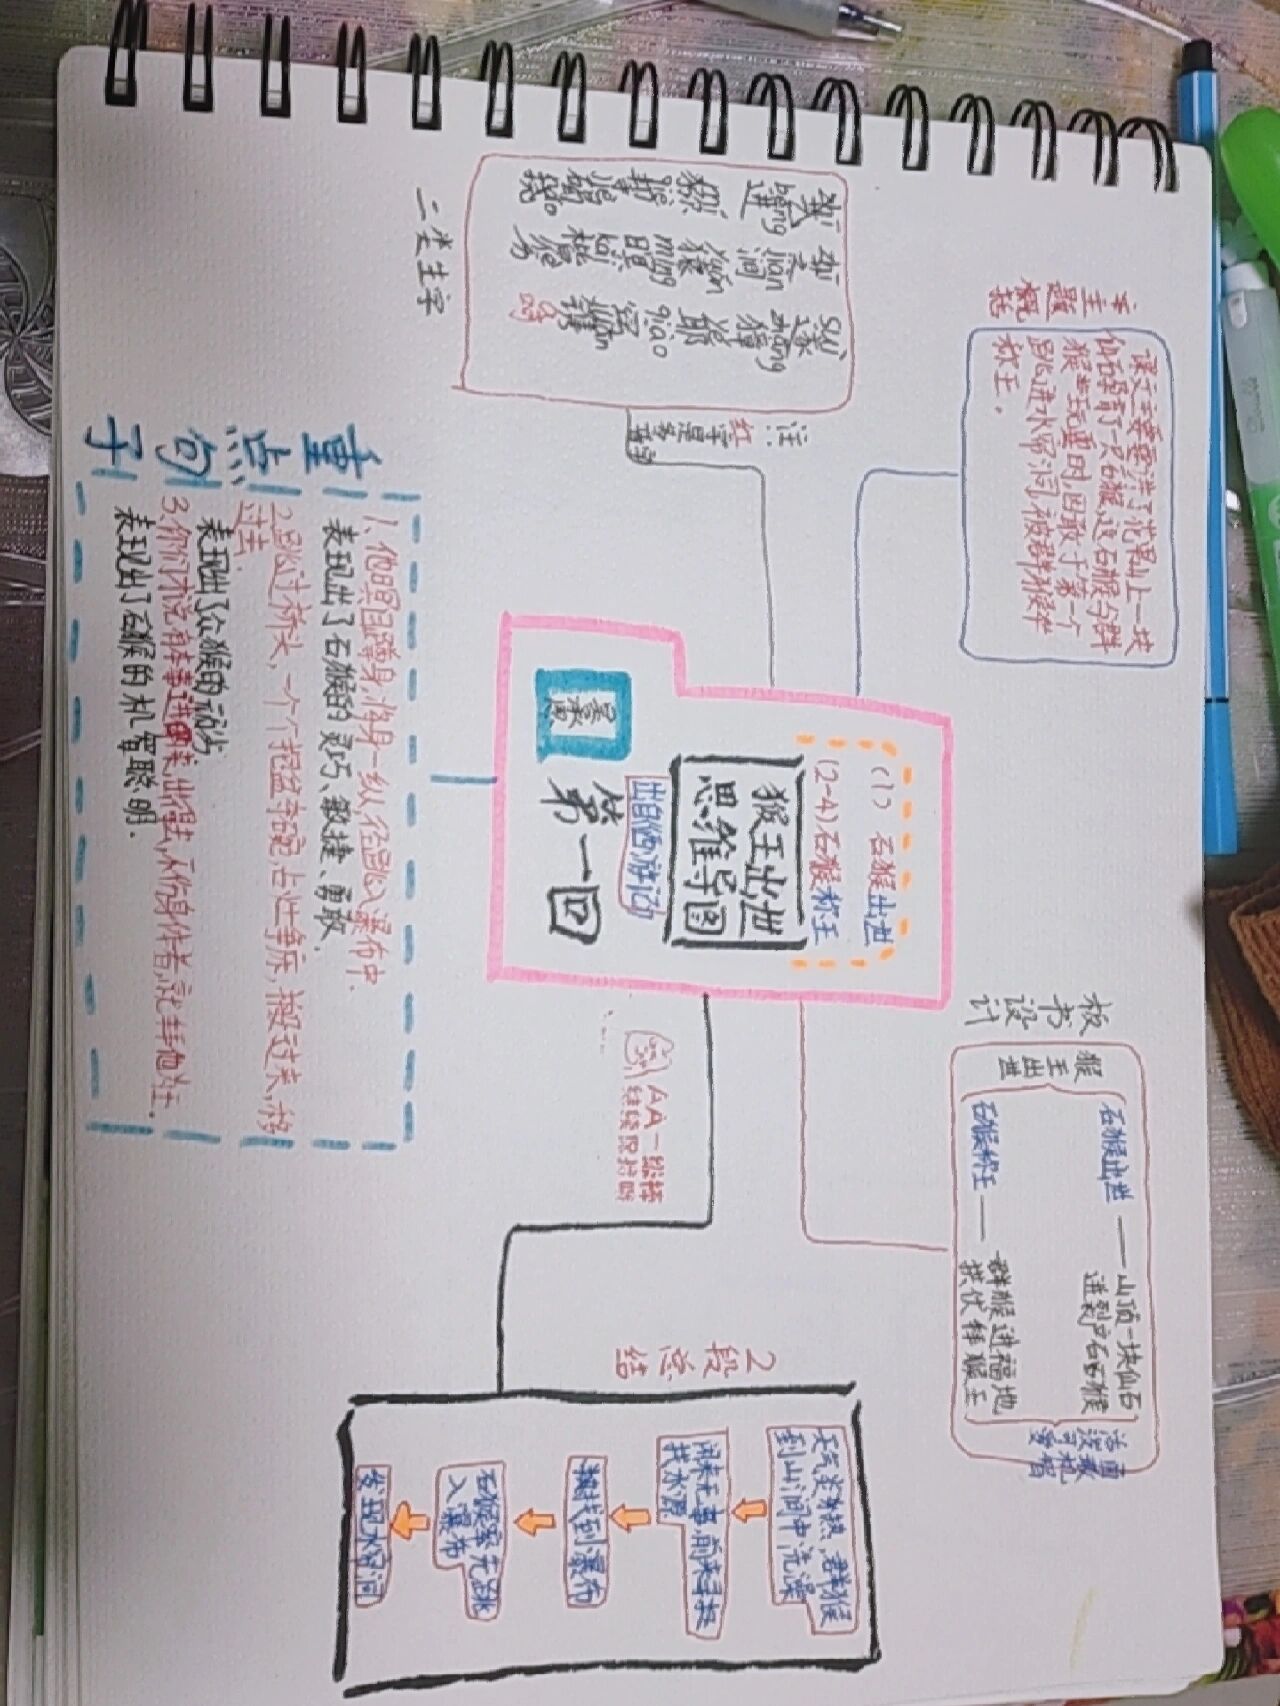 主题概括
课文主要要讲了花果山上一块
仙石孕育了一只石猴,这石猴与群
猴在玩耍时,因敢于第一个
跳进水帘洞,被群猴拜
称王。
板书设计
猴王出世
石猴出世——山顶一块仙石
迸裂产石猴
石猴称王——群猴进福地
拱伏拜猴王
活泼可爱
勇敢机智
二类生字
bèng
jiàn
suì
迸
涧
遂
yuán
zhāng
猿
獐
míng
瞑
jiào
注:
红字是多音字
(1)石猴出世
(2-4)石猴称王
猴王出世
思维导图
出自《西游记》
第一回
AA一级棒
继续保持哦
2段总结
天气炎热,群猴
到山涧中洗澡
闲来无事,前来寻找
找水源
找到瀑布
石猴率先跳
入瀑布
发现水帘洞
重点句子
1、他瞑目蹲身,将身一纵,径跳入瀑布中.
表现出了石猴的灵巧、敏捷、勇敢.
2.跳过桥头,一个个抢盆夺碗,占灶争床,搬过来,移
过去.
表现出了众猴的顽劣
3.你们才说有本事进得来,出得去,不伤身体者,就拜他为王.
表现出了石猴的机智聪明.